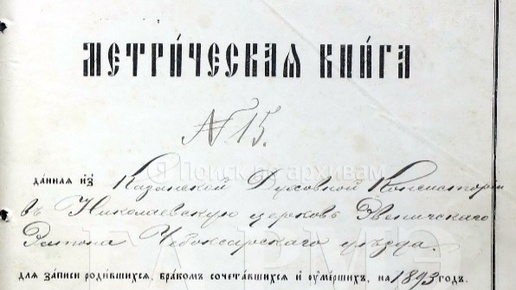 МЕТРИ́ЧЕСКАѦ КНИ́ГА
№ 15.
Я Поиск по архивам
да́нная изъ Казанской Духовной Консисторіи
въ Николаевскую церковь Звеничскаго
Затона Чебоксарскаго уѣзда.
для за́писи роди́вшихся, бра́комъ сочета́вшихся и оуме́ршихъ, на 1893 годъ.